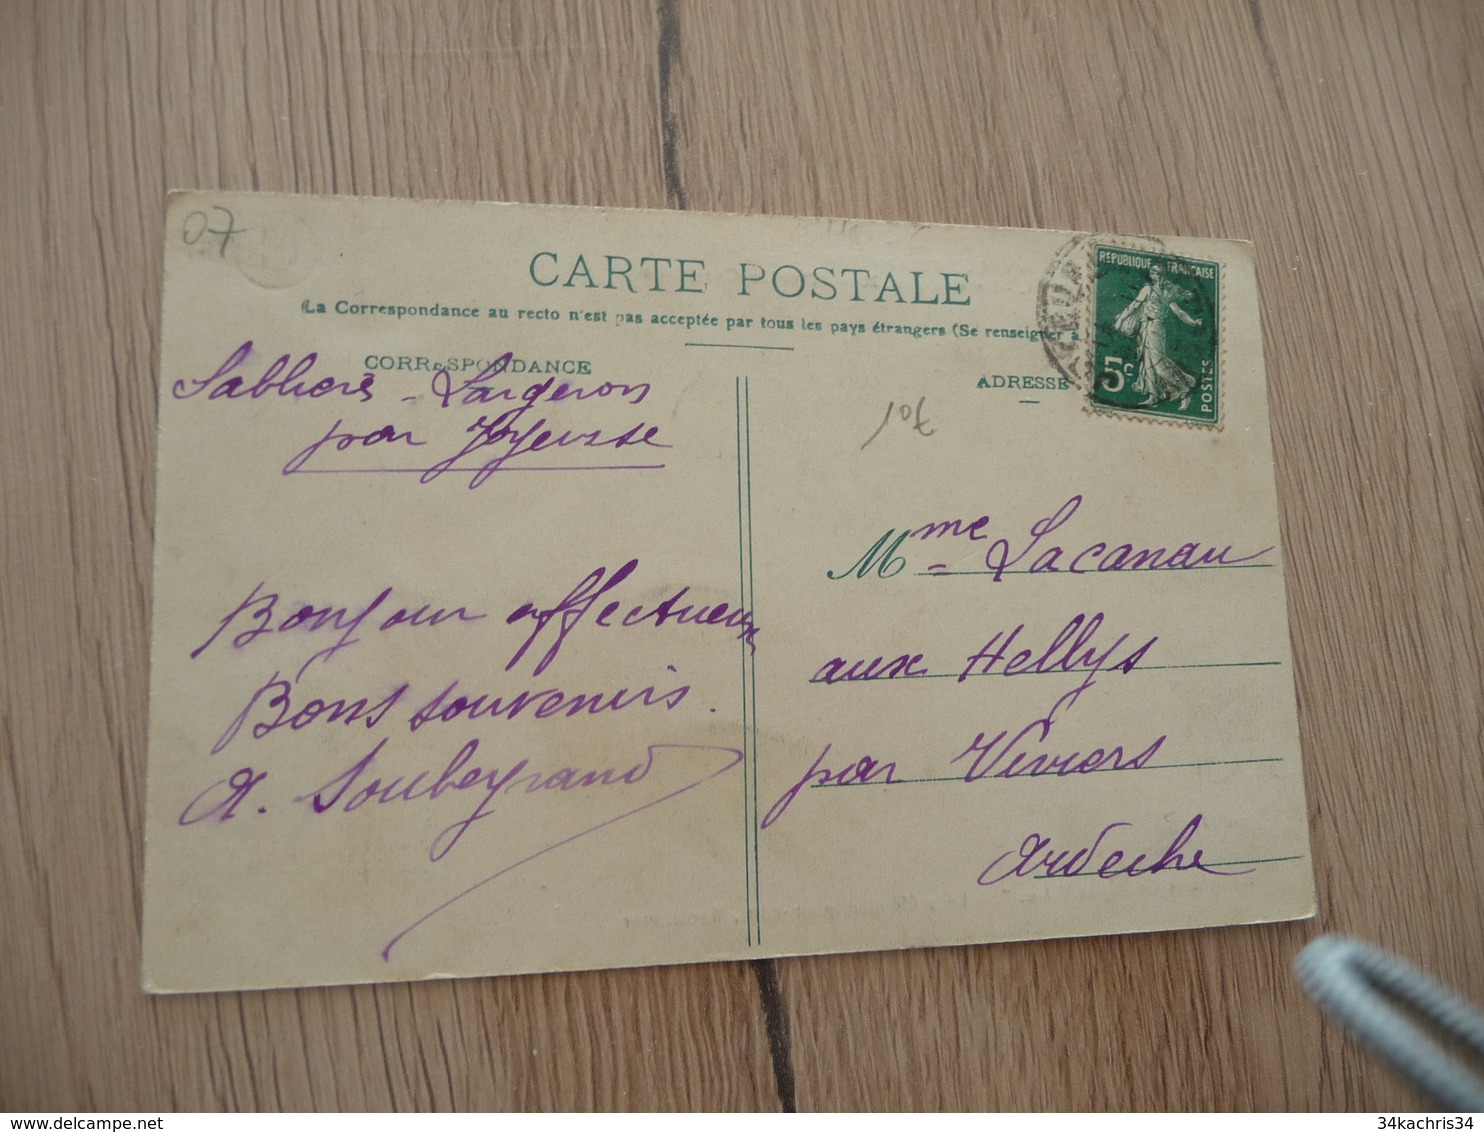 07
CARTE POSTALE
(La Correspondance au recto n'est pas acceptée par tous les pays étrangers (Se renseigner à
CORRESPONDANCE
Sablières - Largeron
par Joyeuse
Bonjour affectueux
Bons souvenirs.
A. Soubeyrand
ADRESSE
REPUBLIQUE FRANÇAISE
5c
POSTES
Mme Lacanau
aux Hellys
par Viviers
Ardeche
34kachris34